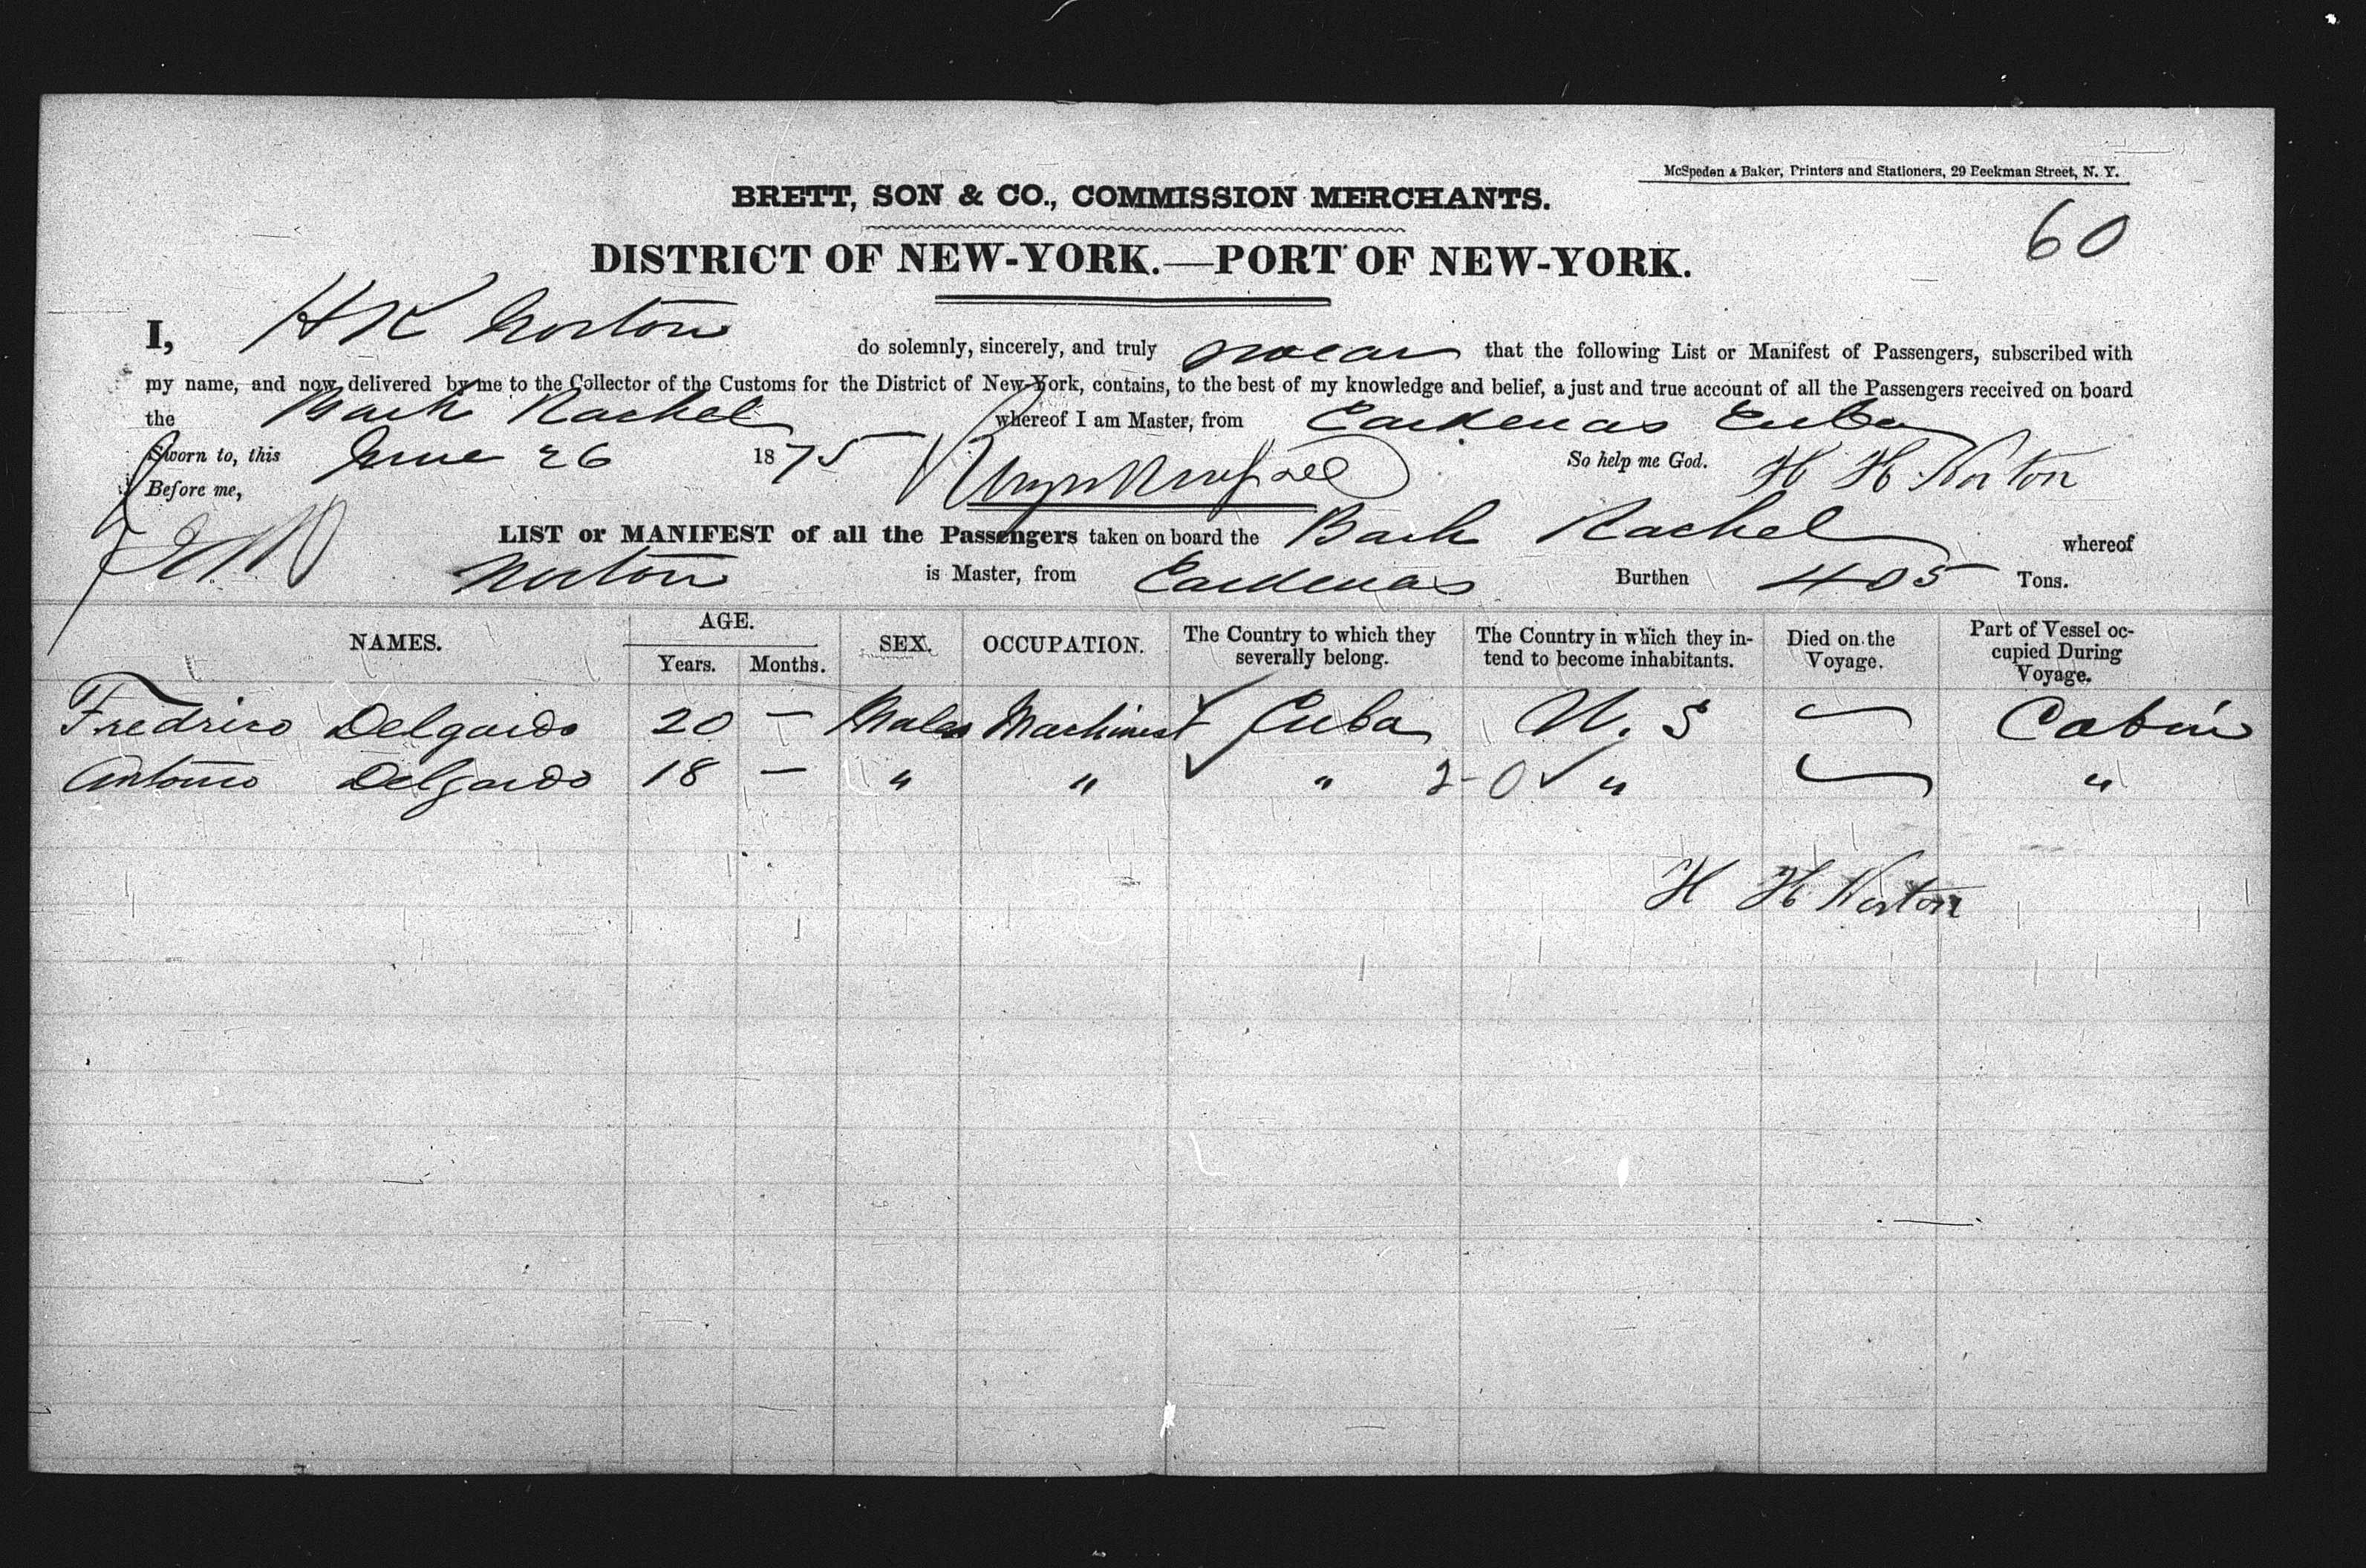 McSpeden & Baker, Printers and Stationers, 29 Beekman Street, N. Y.
BRETT, SON & CO., COMMISSION MERCHANTS.
60
DISTRICT OF NEW-YORK.—PORT OF NEW-YORK.
I, H K Norton do solemnly, sincerely, and truly swear that the following List or Manifest of Passengers, subscribed with
my name, and now delivered by me to the Collector of the Customs for the District of New-York, contains, to the best of my knowledge and belief, a just and true account of all the Passengers received on board
the Bark Rachel whereof I am Master, from Cardenas Cuba
Sworn to, this June 26 1875 So help me God. H H Norton
Before me,
LIST or MANIFEST of all the Passengers taken on board the Bark Rachel whereof
Norton is Master, from Cardenas Burthen 405 Tons.
NAMES. AGE. Years. Months. SEX. OCCUPATION. The Country to which they severally belong. The Country in which they intend to become inhabitants. Died on the Voyage. Part of Vessel occupied During Voyage.
Fredrico Delgardo 20 — Males Machinest Cuba U. S Cabin
Antonio Delgardo 18 — " " " 2-0 " "
H H Norton